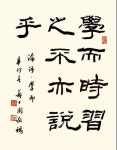 學而時習
之不亦說
乎
論語學而